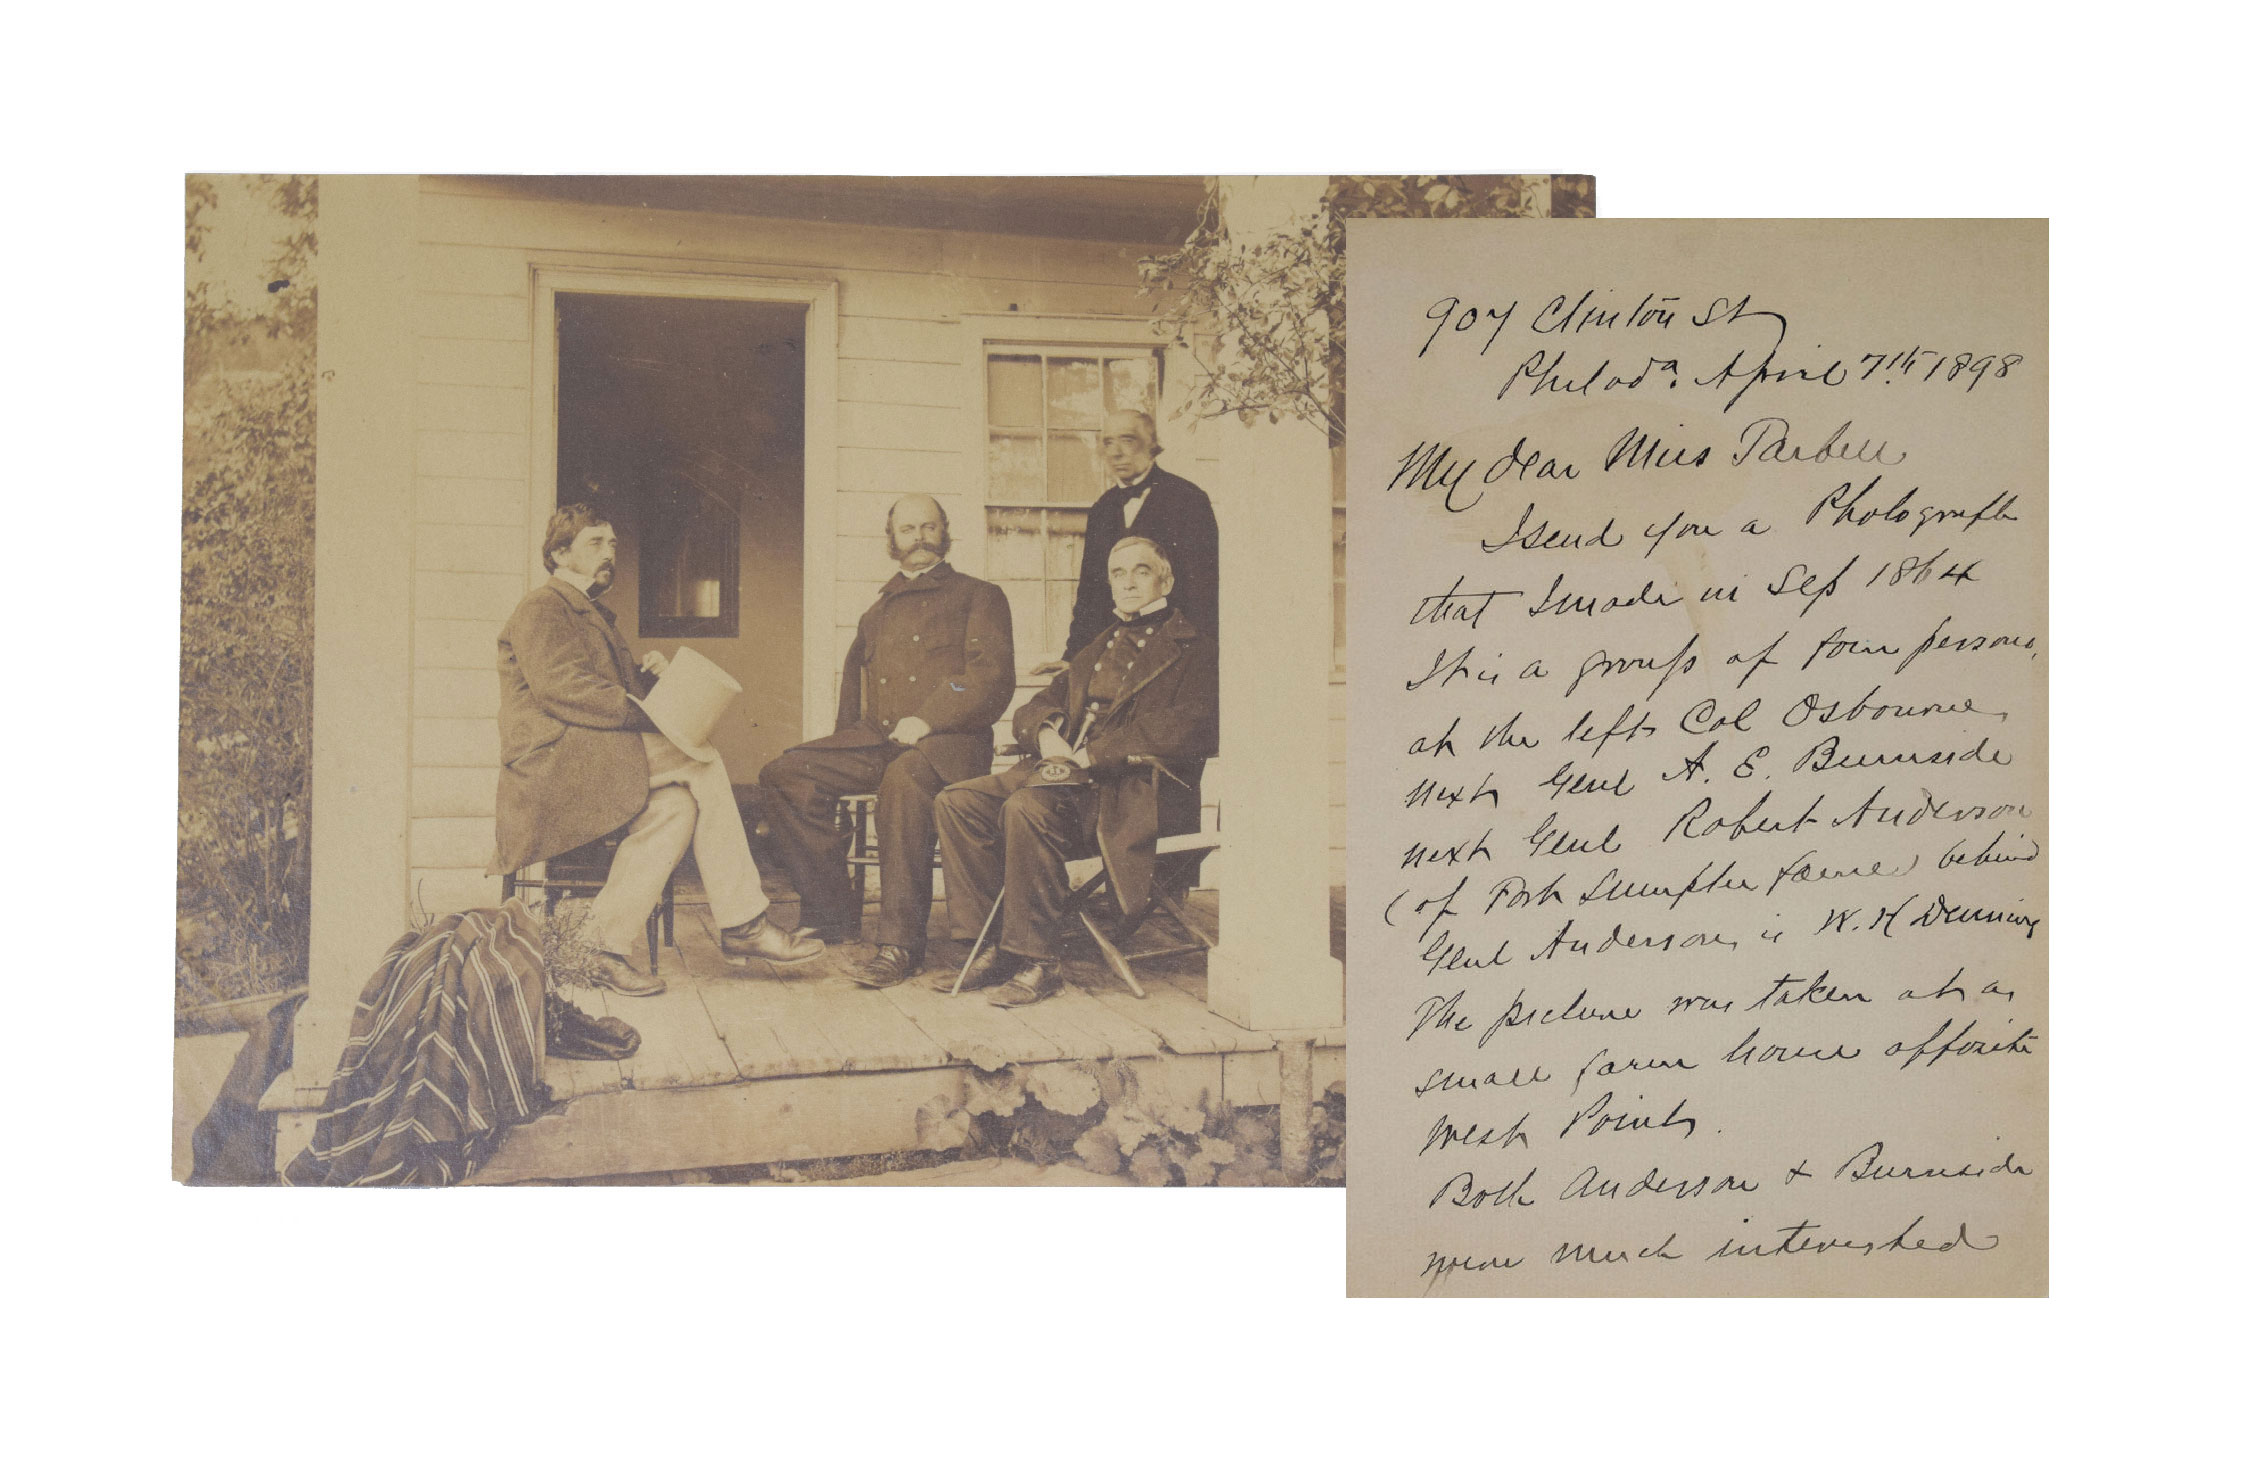 907 Clinton St
Philada. April 7th 1898
My dear Miss Tarbell
I send you a Photograph
that I made in Sep 1864
It is a group of four persons,
at the left Col Osbourne,
next Genl A. E. Burnside
next Genl Robert Anderson
(of Fort Sumpter fame) behind
Genl Anderson, is W. H Denning
The picture was taken at a
small farm house opposite
West Point.
Both Anderson & Burnside
were much interested